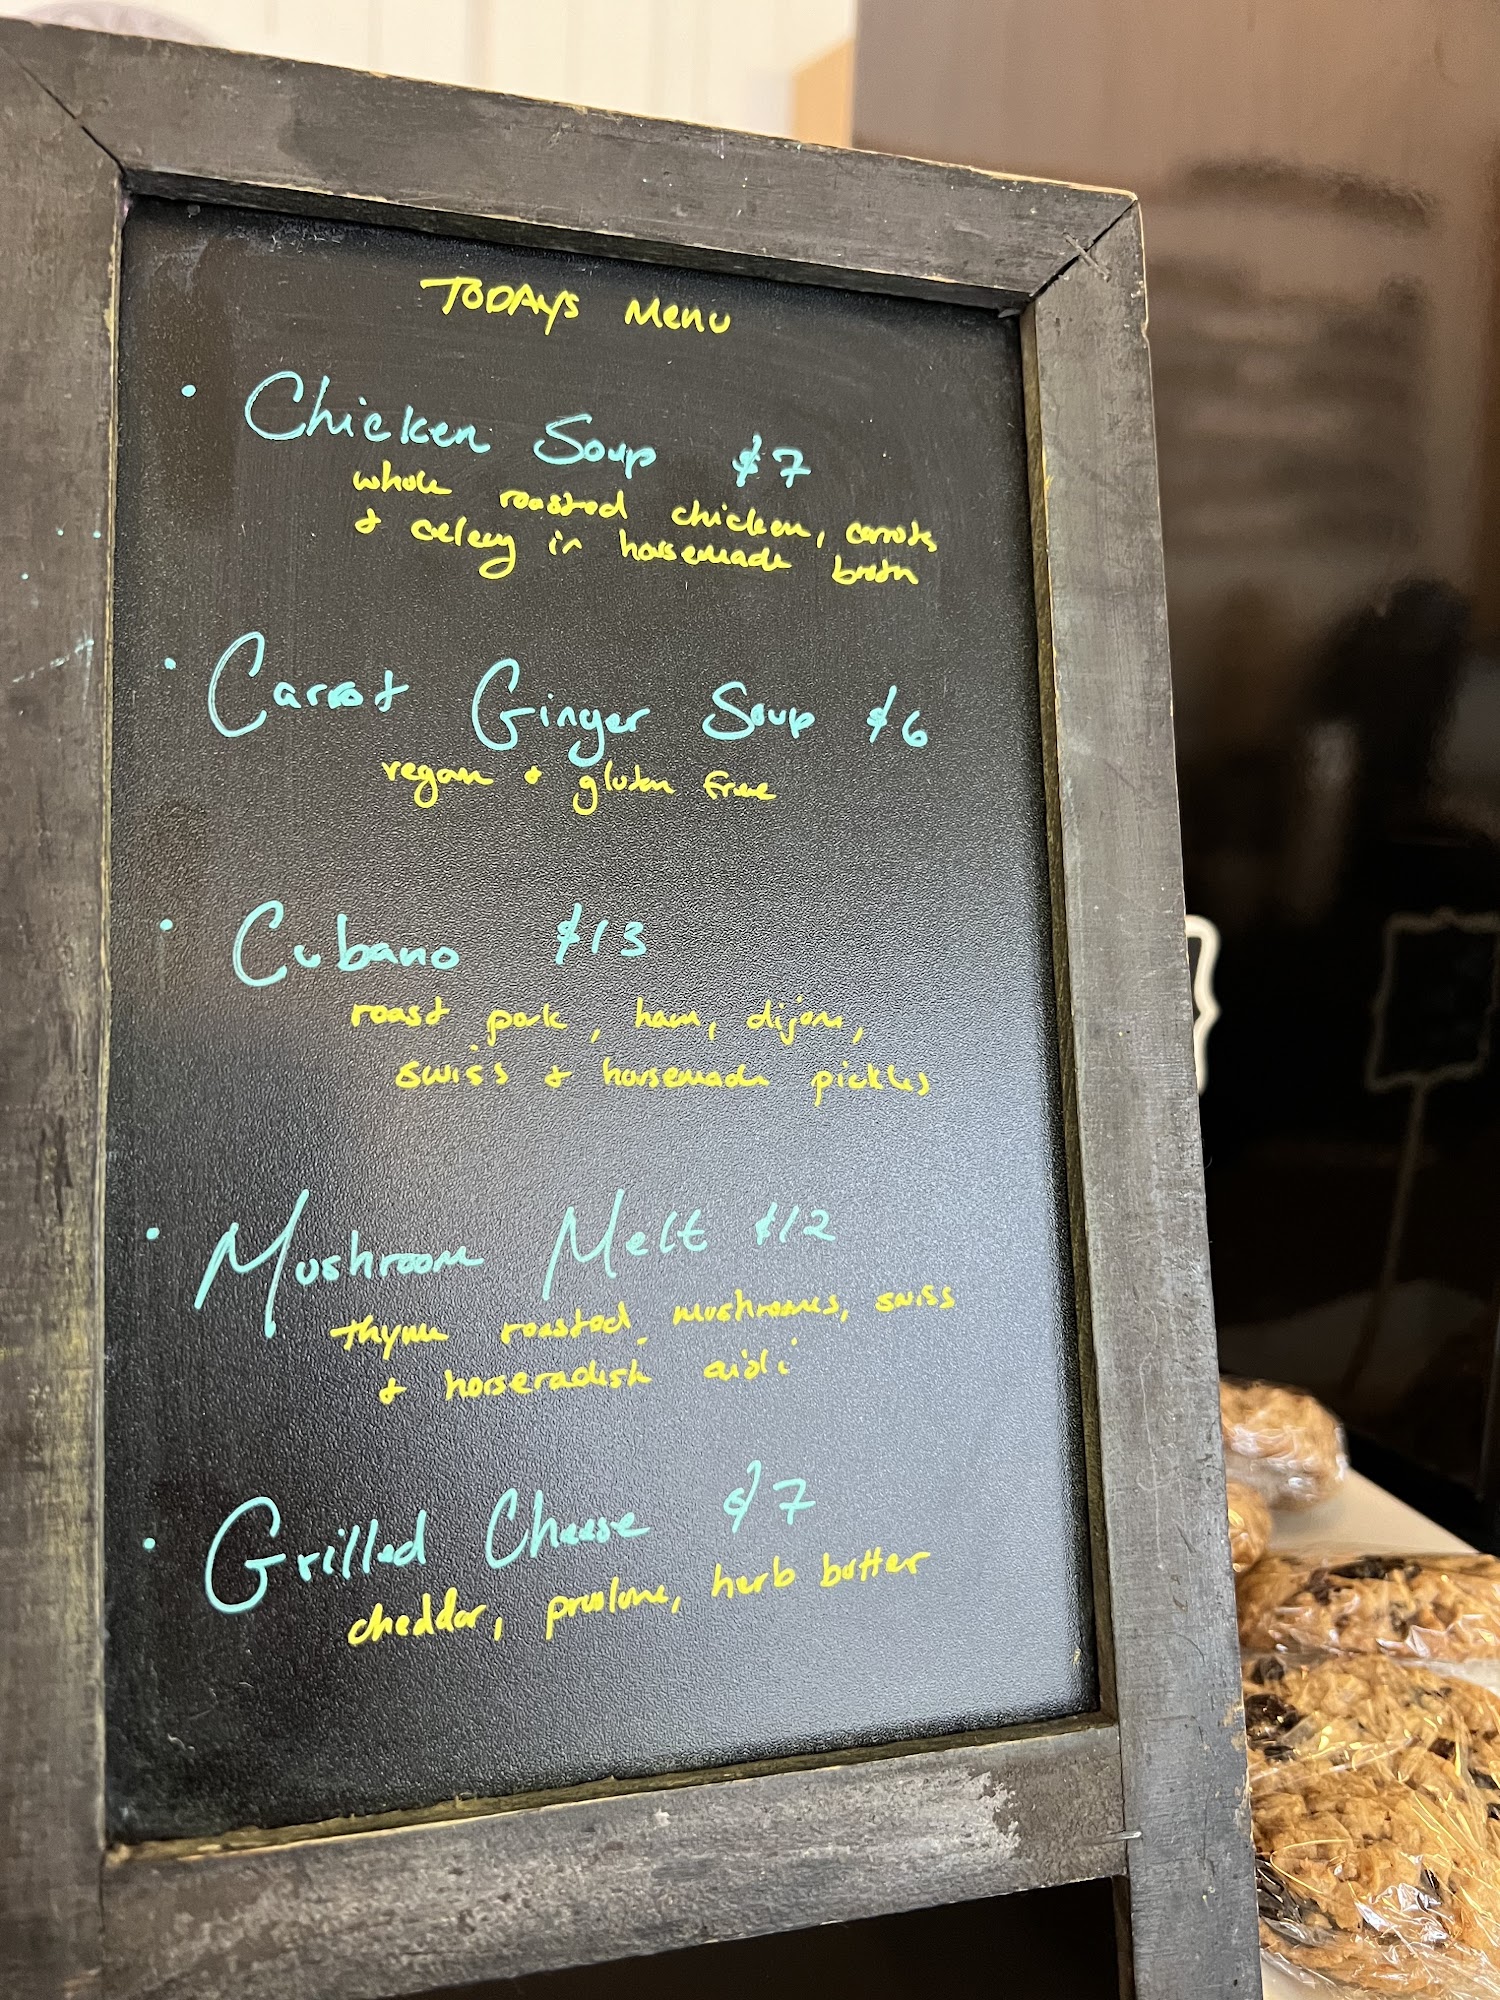 TODAYS Menu
• Chicken Soup $7
whole roasted chicken, carrots
& celery in housemade broth
• Carrot Ginger Soup $6
vegan & gluten free
• Cubano $13
roast pork, ham, dijon,
swiss & housemade pickles
• Mushroom Melt $12
thyme roasted mushrooms, swiss
& horseradish aioli
• Grilled Cheese $7
cheddar, provlone, herb butter